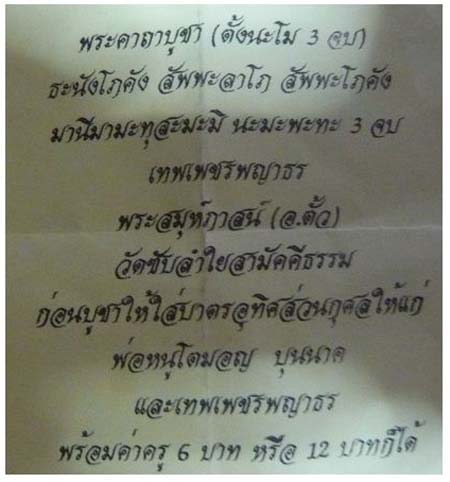 พระคาถาบูชา (ตั้งนะโม 3 จบ)
ธะนังโภคัง สัพพะลาโภ สัพพะโภคัง
มานีมามะทุสะมะมิ นะมะพะทะ 3 จบ
เทพเพชรพญาธร
พระสมุห์ภาสน์ (อ.ตั้ว)
วัดซับลำใยสามัคคีธรรม
ก่อนบูชาให้ใส่บาตรอุทิศส่วนกุศลให้แก่
พ่อหนูโตมอญ บุนนาค
และเทพเพชรพญาธร
พร้อมค่าครู 6 บาท หรือ 12 บาทก็ได้